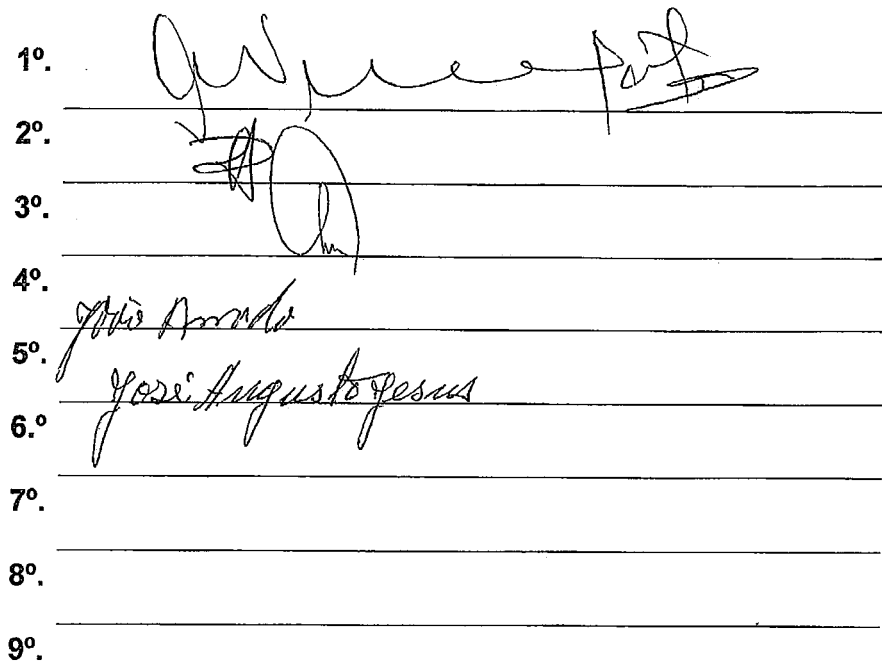 1º.
2º.
3º.
4º.
João Amado
5º.
José Augusto Jesus
6.º
7º.
8º.
9º.